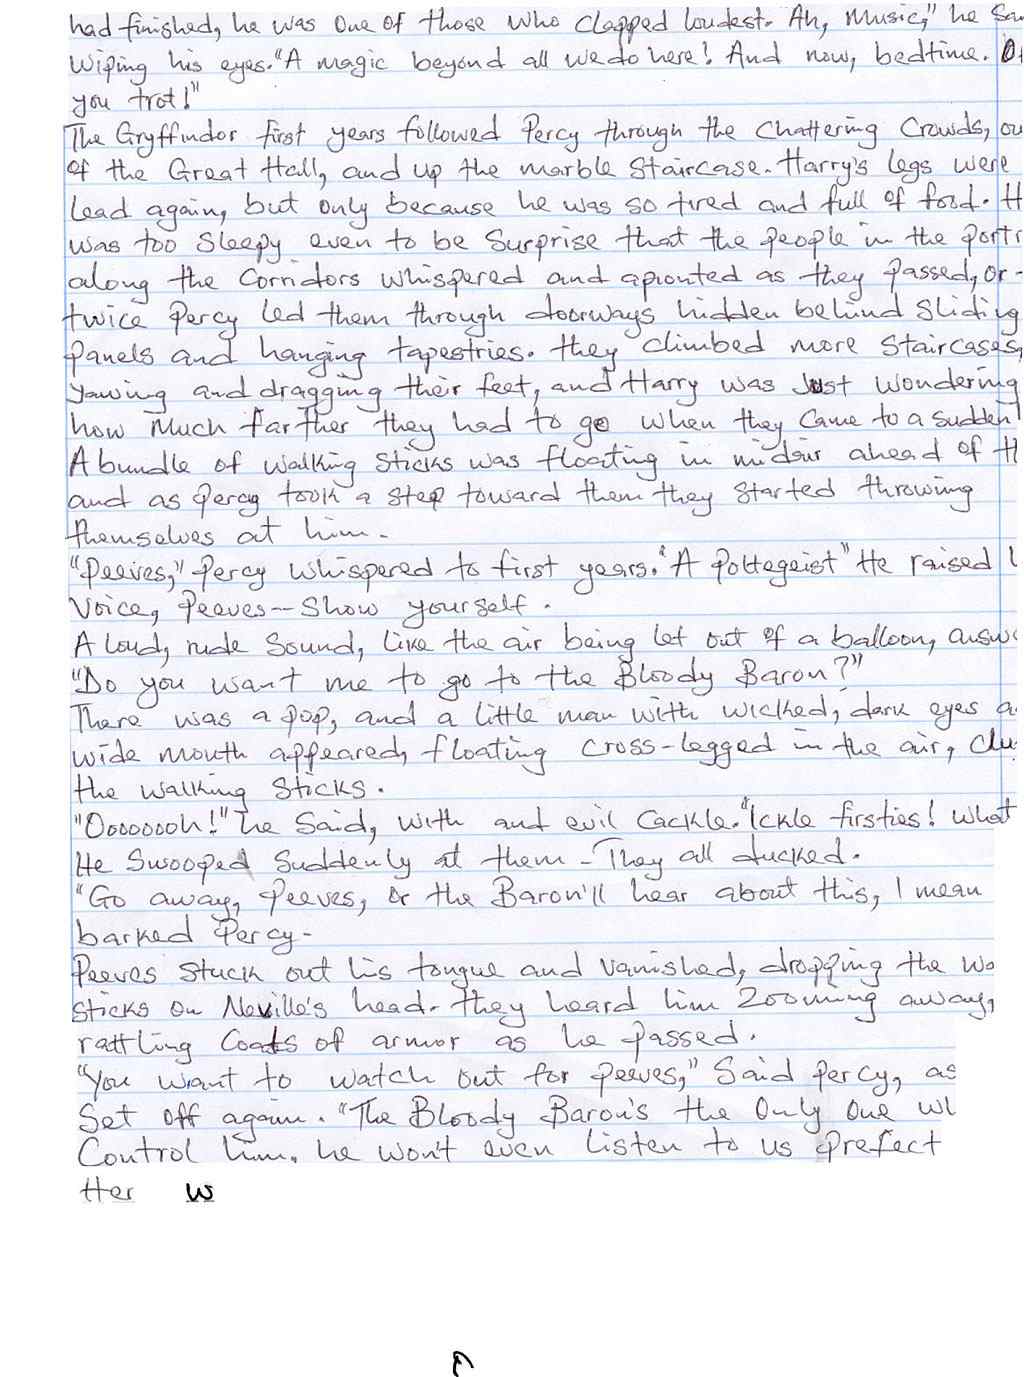 had finished, he was One of those who clapped loudest. Ah, Music," he
Wiping his eyes. "A magic beyond all we do here! And now, bedtime.
you trot!"
The Gryffindor first years followed Percy through the Chattering Crowds,
of the Great Hall, and up the marble Staircase. Harry's legs were
lead again, but only because he was so tired and full of food.
was too Sleepy even to be Surprise that the people in the
along the Corridors whispered and apionted as they passed, or
twice Percy Led them through doorways hidden behind Sliding
panels and hanging tapestries. they climbed more Staircases,
yawing and dragging their feet, and Harry was Just wondering
how Much farther they had to go when they Came to a sudden
A bundle of walking Sticks was floating in midair ahead of
and as Percy took a step toward them they Started throwing
themselves at him.
"Peeves," Percy whispered to first years. "A Poltegeist" He raised
Voice, Peeves--Show yourself.
A Loud, rude Sound, Like the air being let out of a balloon,
"Do you want me to go to the Bloody Baron?"
There was a pop, and a Little man with wicked, dark eyes
wide mouth appeared, floating cross-legged in the air,
the walking Sticks.
"Oooooooh!" he Said, with and evil Cackle. "Ickle firsties! what
He Swooped Suddenly at them - They all ducked.
"Go away, Peeves, or the Baron'll hear about this, I mean
barked Percy-
Peeves Stuck out his tongue and vanished, dropping the
Sticks on Neville's head. they heard him Zooming away,
rattling Coats of armor as he passed.
"You want to watch out for peeves," Said percy, as
Set off again. "The Bloody Baron's the Only One
Control him, he won't even listen to us prefect
Her w